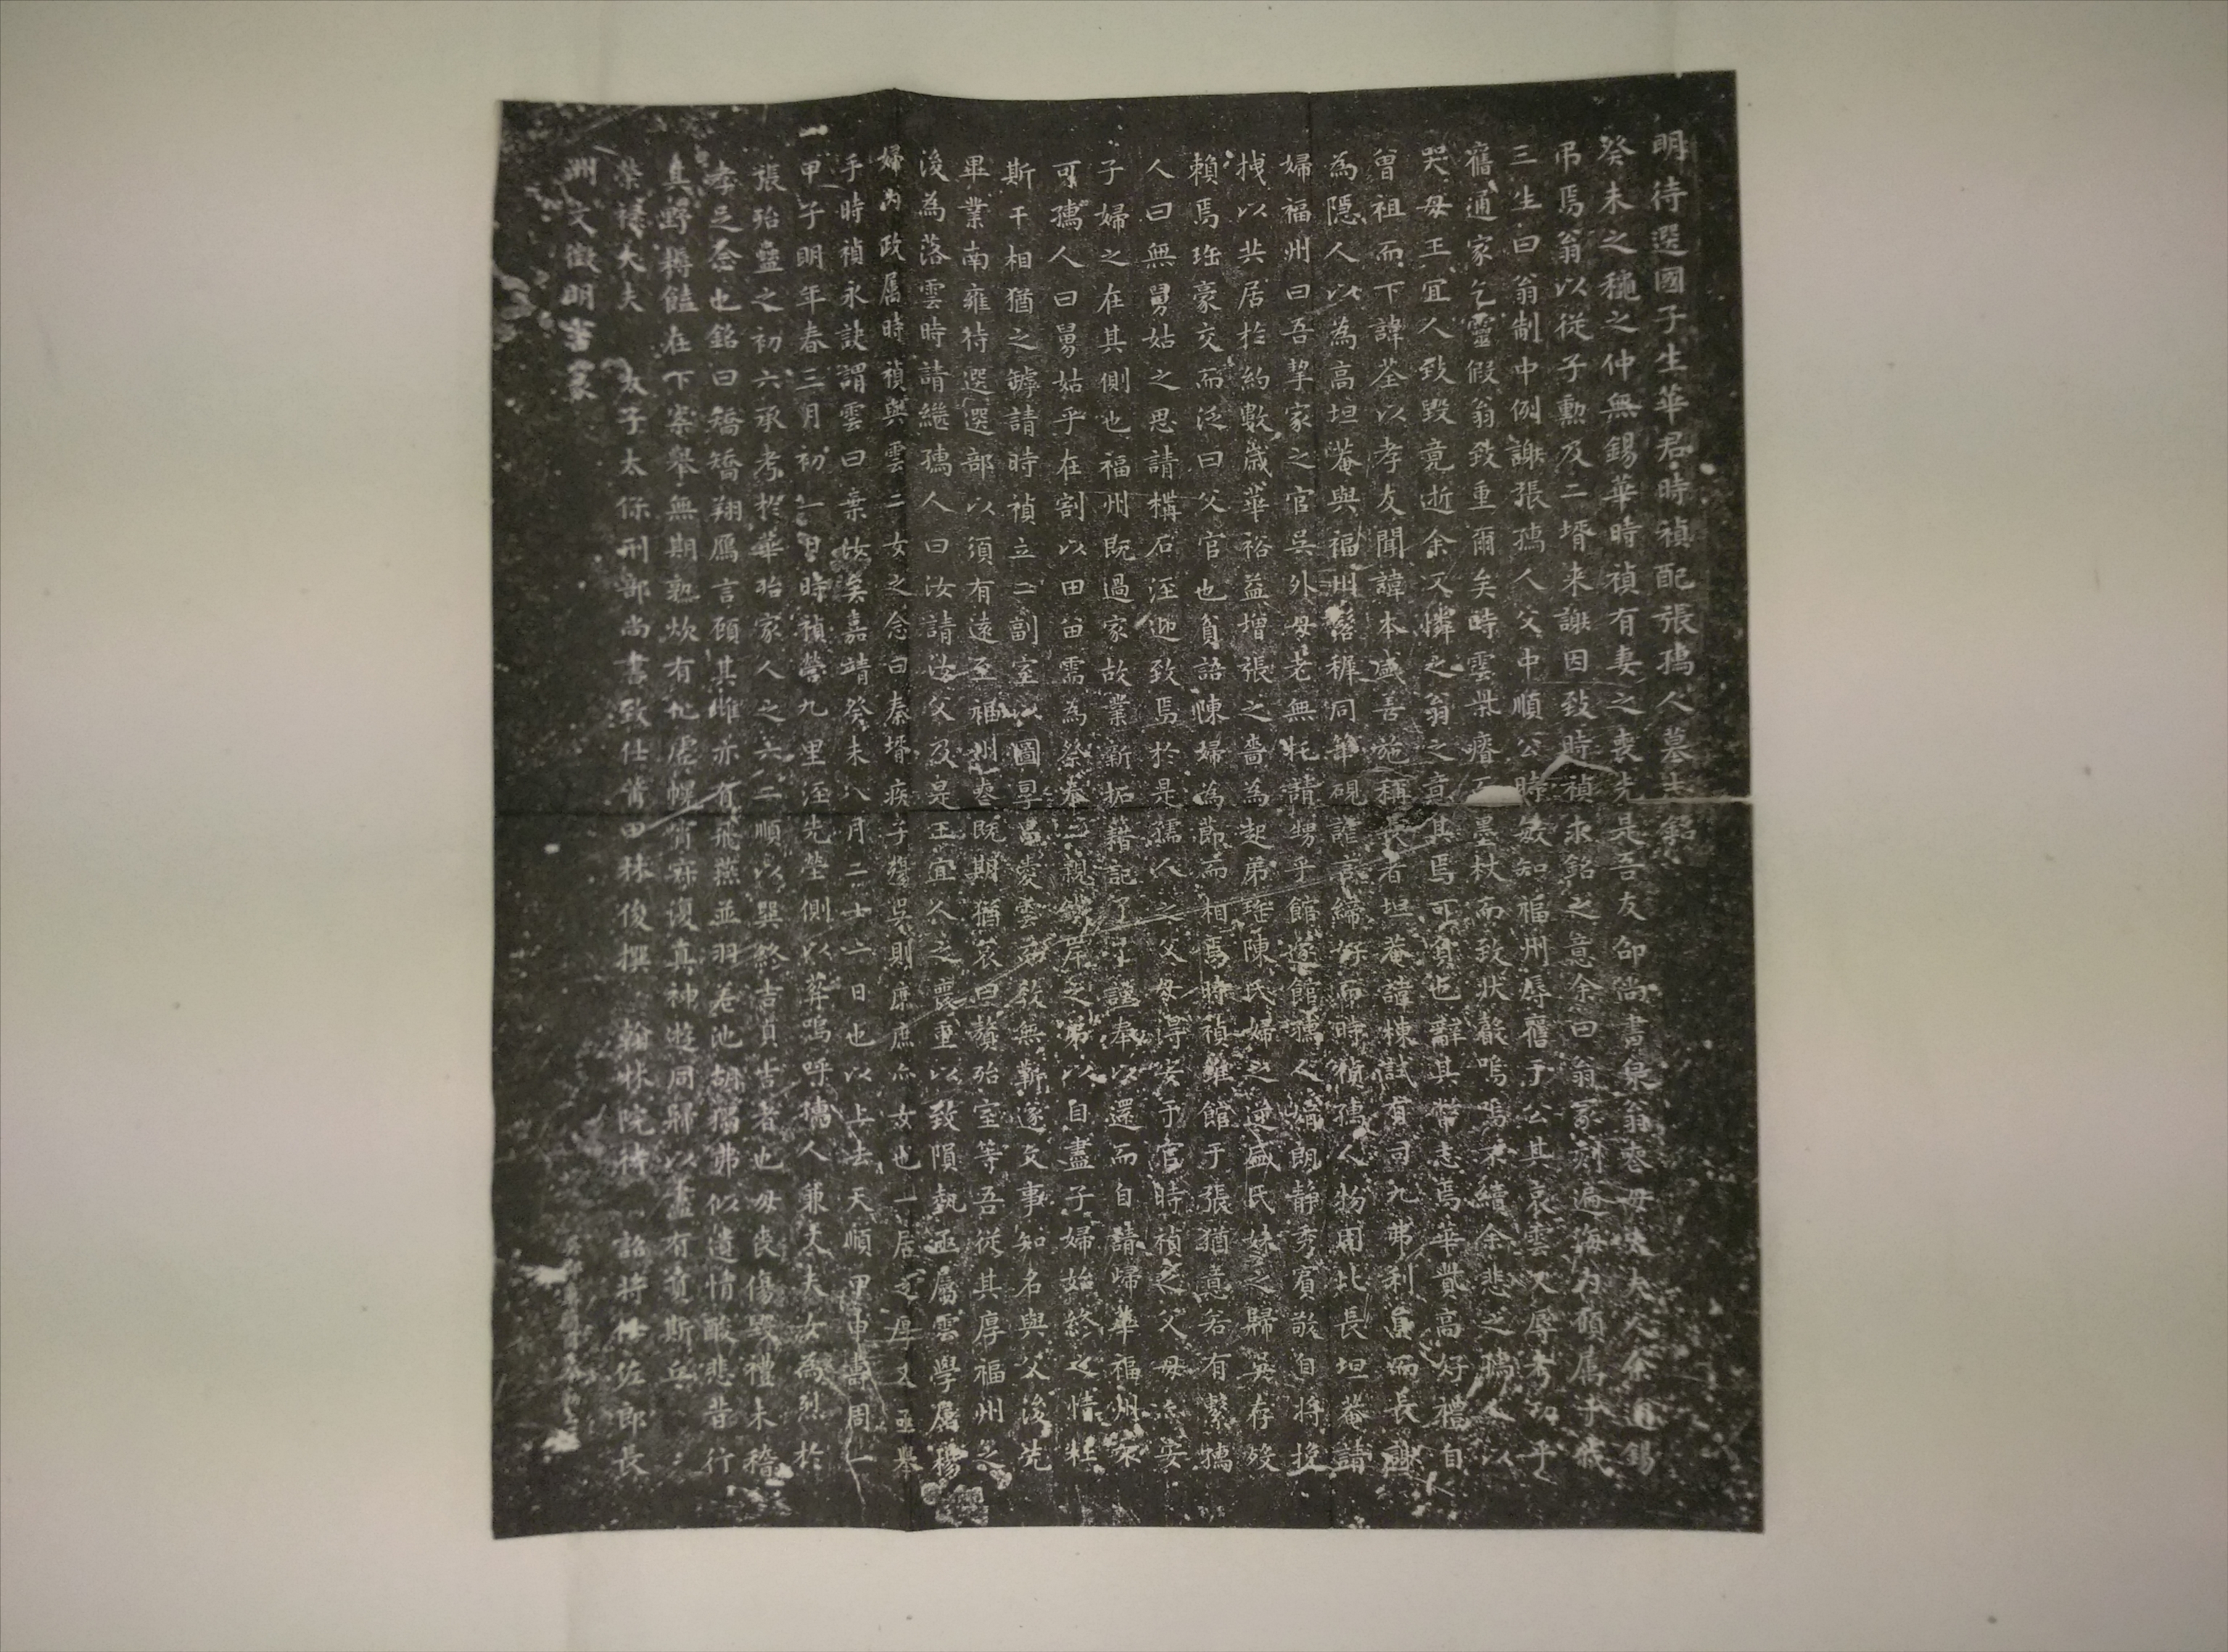 明待選國子生華君時禎配張孺人墓志銘
癸未之穐之仲無錫華時禎有妻之喪先是吾友邵尚書泉翁喪母太夫人余自錫
弔焉翁以從子勳及二壻来謝因致時禎求銘之意余曰翁家遍海內顧屬予我
三生曰翁制中例謝張孺人父中順公時敏知福州辱舊于公其哀雲又辱考功乎
舊通家乞靈假翁致重爾矣時雲杲瘠至墨杖而致狀嗚焉不續余悲之孺人以
哭母王宜人致毀竟逝余又憐之翁之意其焉可負也辭其幣志焉華貲高好禮自
曾祖而下諱荃以孝友聞諱本盛善施稱長者坦菴諱棟試有司九弗利益而長
為隱人以為高坦菴與福州同筆硯讙言締好而時禎孺人物用比長坦菴請
婦福州曰吾挈家之官吳外母老無牦請甥乎館遂館孺人婧朗靜秀賓敬自將挽
拽以共居於約數歲華裕益增張之啬為起弟珤陳氏婦之逆盛氏妹之歸吳存歿
賴焉珤豪交而泛曰父官也負語陳婦為節而相焉時禎雖館于張猶意若有繫孺
人曰無舅姑之思請構石涇迎致焉於是孺人之父母得安于官時禎之父母亦安
子婦之在其側也福州既過家故業新拓籍記了了謹奉以還而自請歸華福州家
可孺人曰舅姑乎在割以田畬需為祭奉二親之弟以自盡子婦始終之情壯
斯干相猶之罅請時禎立二副室以圖昌愛雲教無靳遂文事知名與父後先
畢業南雍待選選部以須有遠至福州喪既期猶哀曰贅殆室等吾從其厚福州之
後為落雲時請繼孺人曰汝請汝父及是王宜人之喪重以致隕執亟屬雲學屬楊
婦內政屬時禎與雲二女之念曰秦壻疾子吳則庶庶亦女也一居之厚又亟舉
手時禎永訣謂雲曰棄汝矣嘉靖癸未八月二十六日也以上去天順甲申壽周一
甲子明年春三月初一日時禎營九里涇先塋側以葬嗚呼孺人兼丈夫女為烈於
張殆蠱之初六承考於華殆家人之六二順以巽終吉貞吉者也母喪傷毀禮未稽
孝之念也銘曰矯矯翔鴈言顧其雌亦有飛燕並羽差池胡獨弗似遺情酸悲昔行
其野榼饁在下案舉無期孰炊有扊虛幌宵寐復真神遊同歸以蓋有賁斯丘
榮祿大夫 太子太保刑部尚書致仕莆田林俊撰 翰林院待 詔將仕佐郎長
洲文徵明書篆